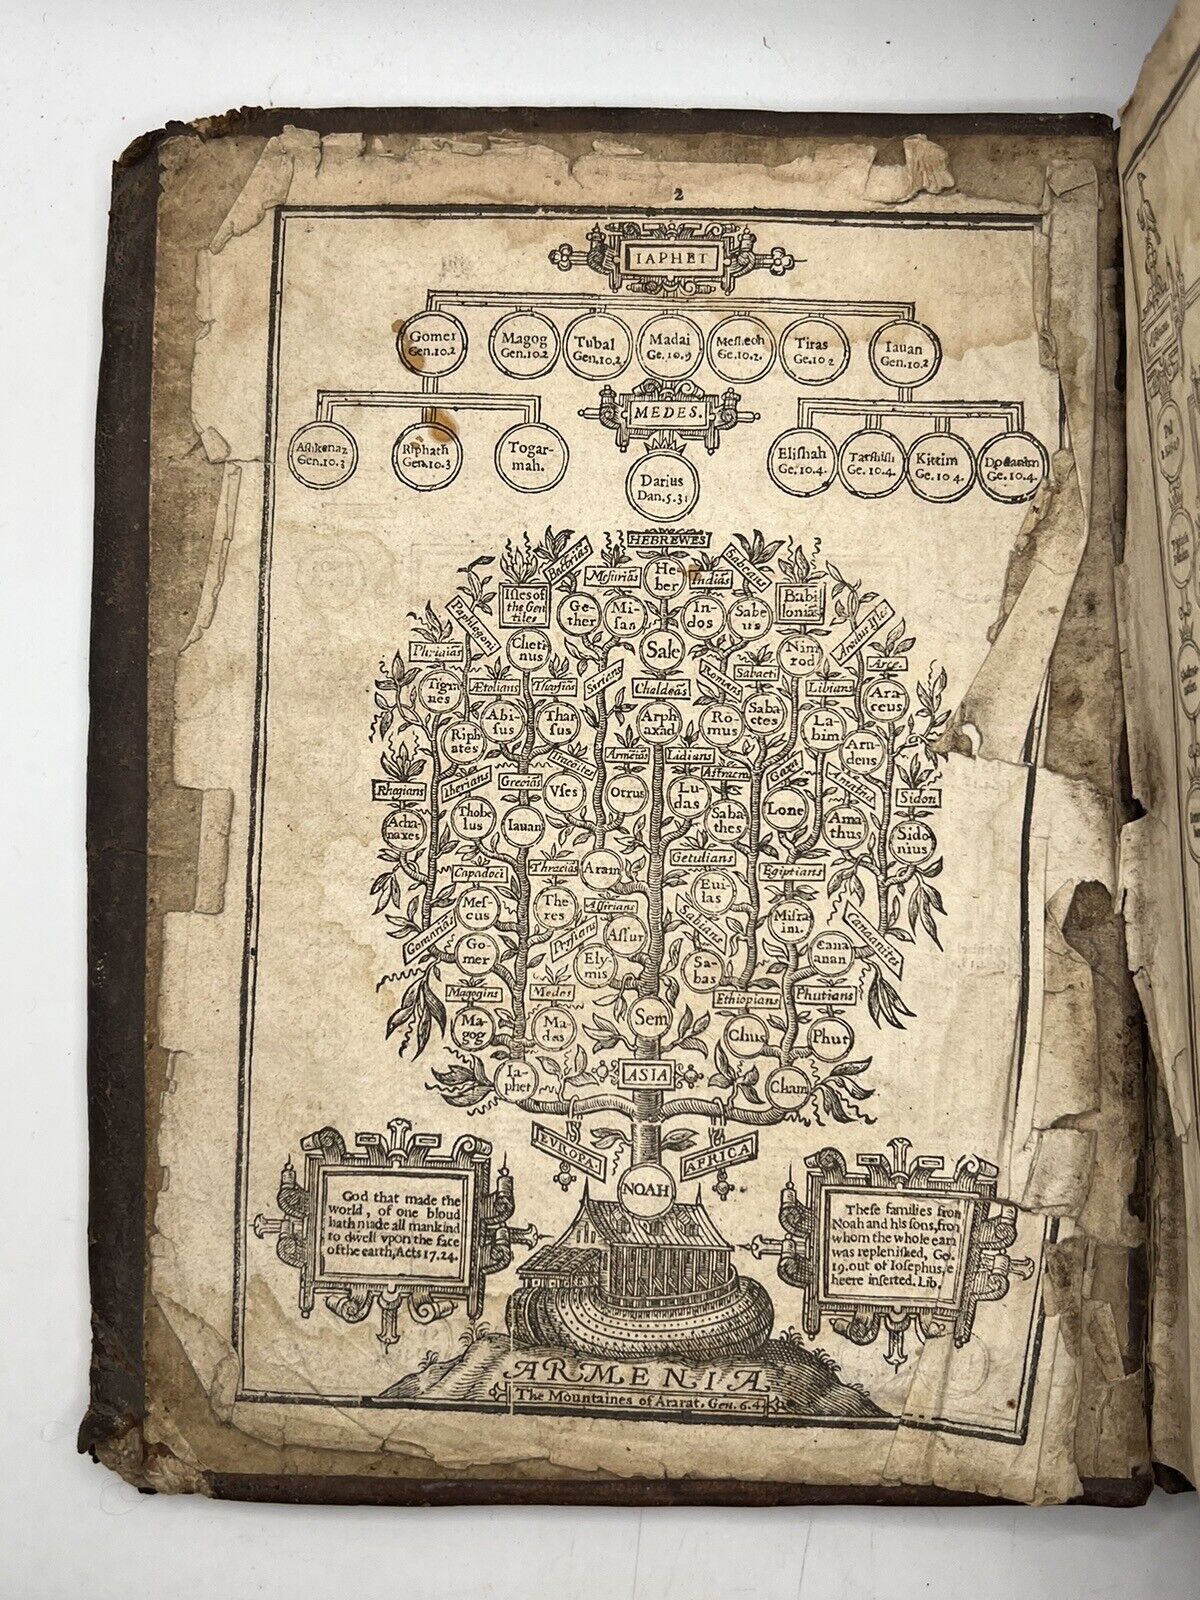 2
IAPHET
Gomer
Gen.10.2
Magog
Gen.10.2
Tubal
Gen.10.2
Madai
Ge.10.9
Meſhech
Ge.10.2.
Tiras
Ge.10 2
Iauan
Gen.10.2
MEDES.
Aſhkenaz
Gen.10.3
Riphath
Gen.10.3
Togar-
mah.
Darius
Dan.5.31
Eliſhah
Ge.10.4.
Tarſhiſh
Ge.10.4.
Kittim
Ge.10 4.
Dodanim
Ge.10.4.
HEBREWES
Bactriās
Meſuriās
He-
ber
Indiās
Sabeans
Iſles of
the Gen
tiles
Ge-
ther
Mi-
ſas
In-
dos
Sabe
us
Babi
loniās
Paphlagoni
Phriaiās
Chetī
nus
Sale
Nim
rod
Aradus Iſle.
Arce.
Ætolians
Tharſiās
Chaldeās
Romans
Sabacti
Libians
Tigra
nes
Abi-
ſus
Thar
ſus
Arph
axad
Ro-
mus
Saba
ctes
La-
bim
Ara-
ceus
Riph
ates
Ara
deus
Rhegians
Iberians
Greciās
Armeiās
Lidians
Sidon
Acha
naxes
Thobe
lus
Iauan
Vſes
Otrus
Lu-
das
Saba
thes
Lone
Ama
thus
Sido
nius
Capadoci
Thraciās
Aram
Getulians
Egiptians
Meſ-
cus
The
res
Aſſirians
Eui-
las
Miſra
im.
Gomariās
Perſians
Aſſur
Sabians
Canaanites
Go-
mer
Ely-
mis
Sa-
bas
Cana
anan
Magogins
Medes
Ethiopians
Phutians
Ma-
gog
Ma-
das
Sem
Chus
Phut
Ia-
phet
ASIA
Cham
EVROPA.
AFRICA
NOAH
God that made the
world, of one bloud
hath made all mankind
to dwell vpon the face
of the earth, Acts 17.24.
Theſe families fron
Noah and his ſons, fron
whom the whole ear
was repleniſhed, Ge.
19. out of Ioſephus,
heere inſerted. Lib.
ARMENIA
The Mountaines of Ararat. Gen. 6.4